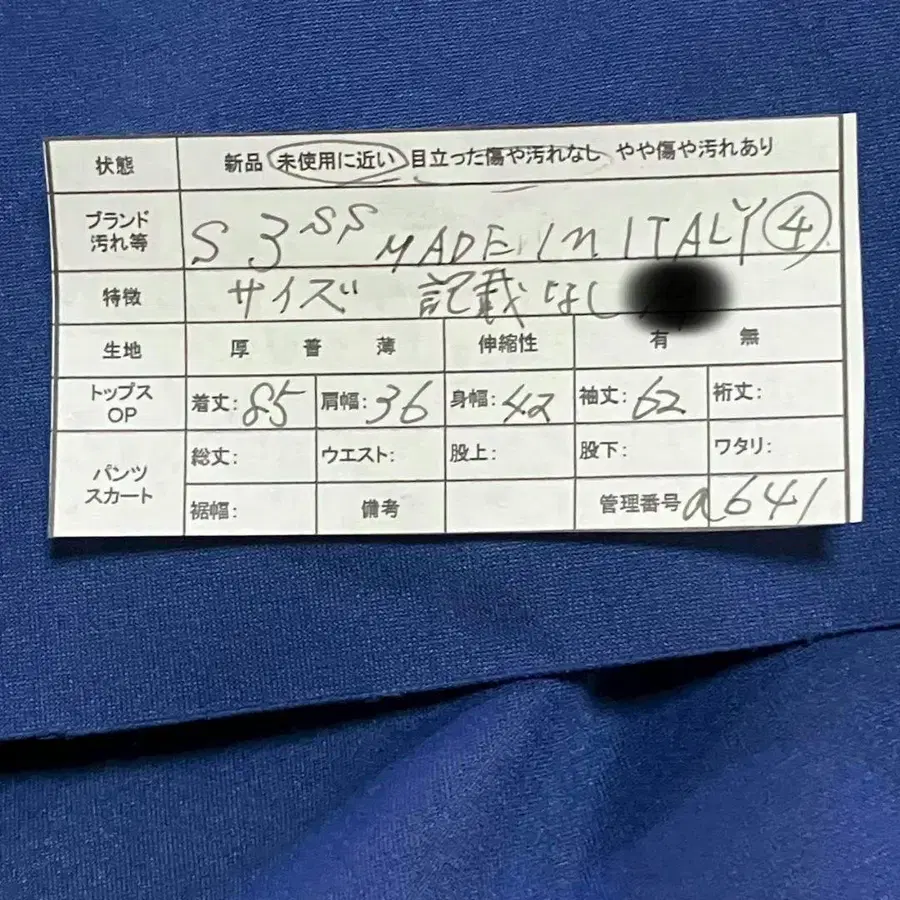 状態 新品 未使用に近い 目立った傷や汚れなし やや傷や汚れあり
ブランド
汚れ等 S 3 SS MADE in ITALY ④
特徴 サイズ 記載なし
生地 厚 普 薄 伸縮性 有 無
トップス
OP 着丈: 85 肩幅: 36 身幅: 42 袖丈: 62 裄丈:
パンツ
スカート 総丈: ウエスト: 股上: 股下: ワタリ:
裾幅: 備考 管理番号 a641